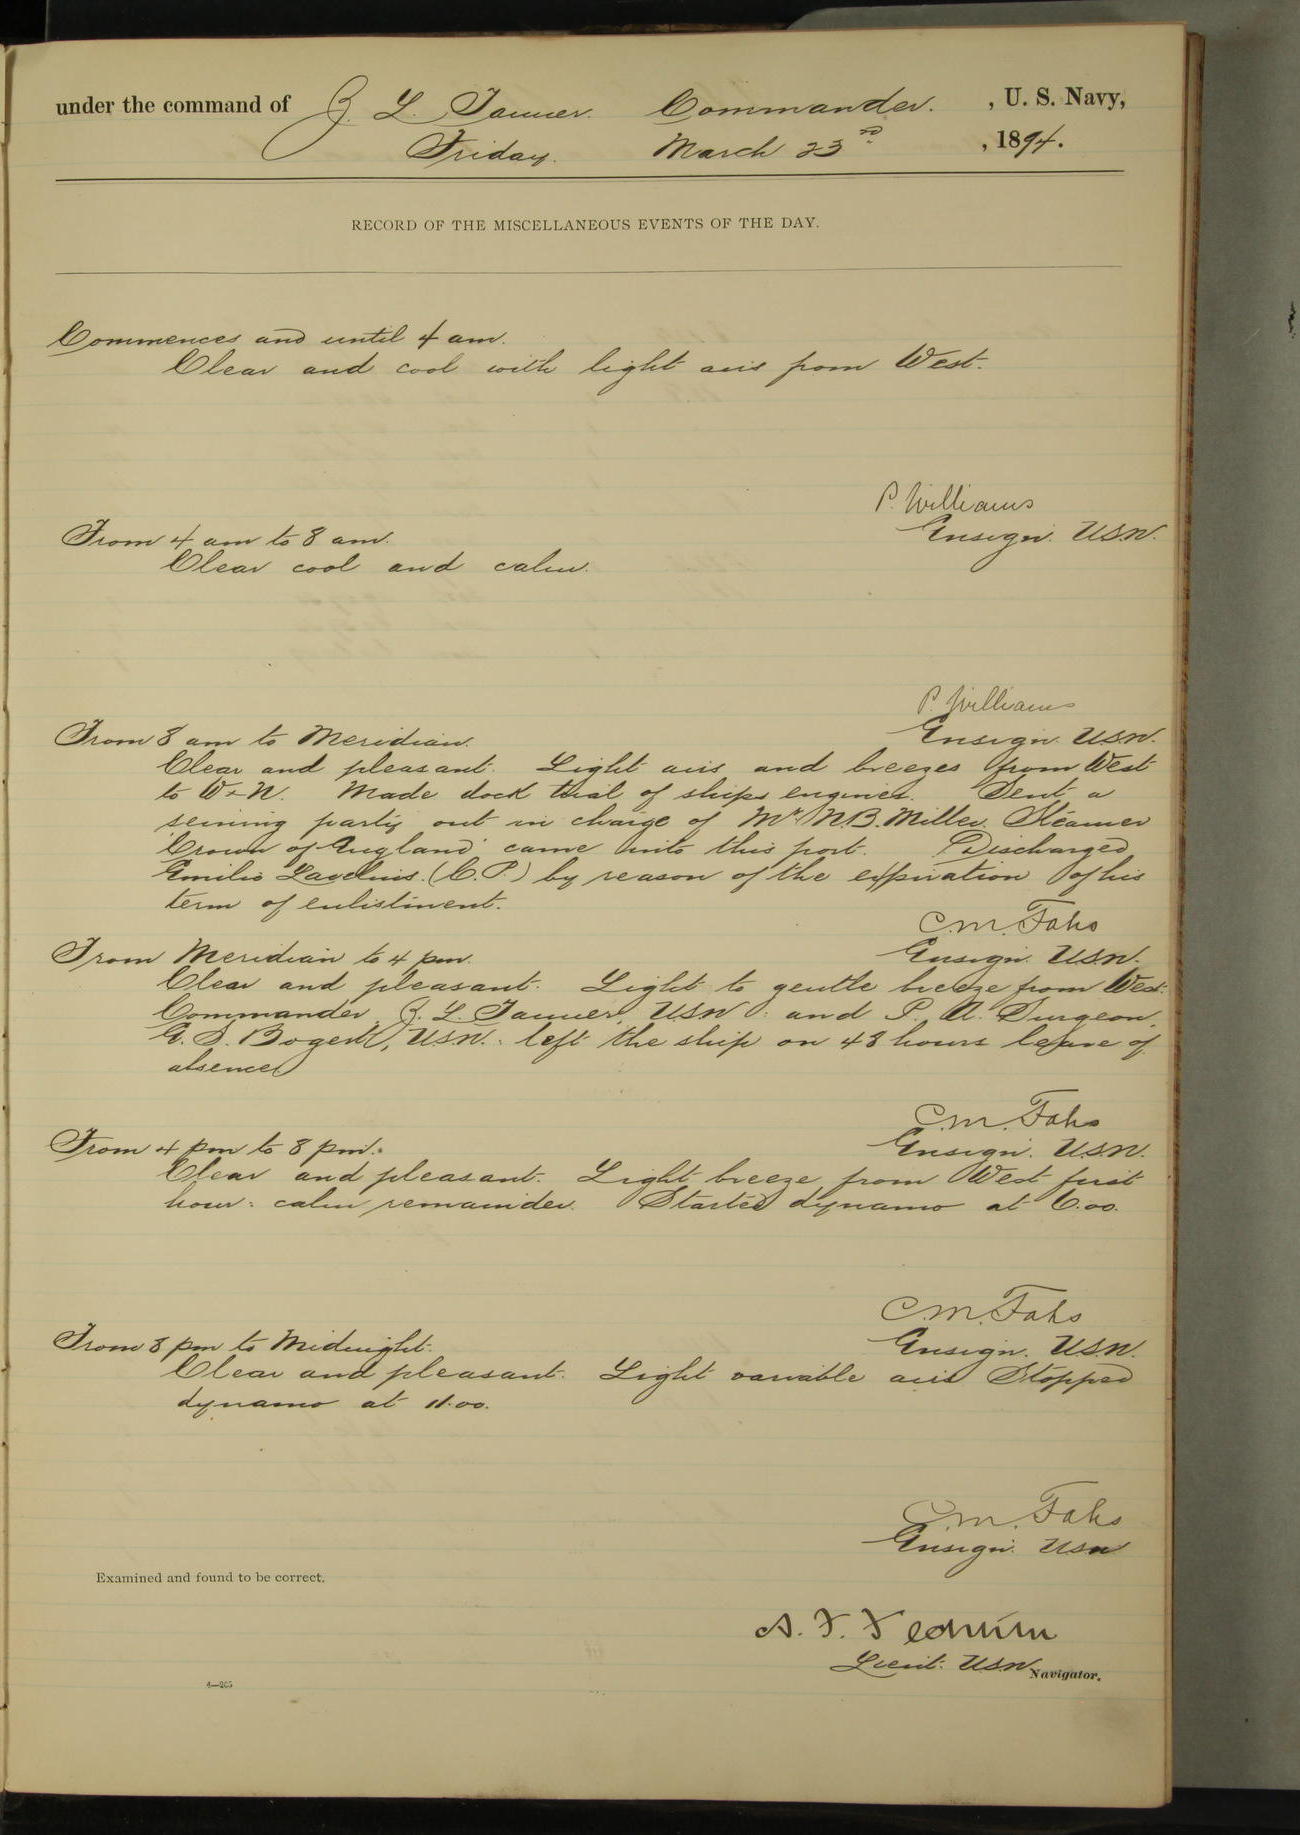 under the command of Z. L. Tanner. Commander. , U. S. Navy,
Friday. March 23rd. , 1894.
RECORD OF THE MISCELLANEOUS EVENTS OF THE DAY.
Commences and until 4 am.
Clear and cool with light airs from West.
P. Williams
Ensign. U.S.N.
From 4 am to 8 am.
Clear cool and calm.
P. Williams
Ensign. U.S.N.
From 8 am to Meridian.
Clear and pleasant. Light airs and breezes from West
to W x N. Made dock trial of ships engines. Sent a
seining party out in charge of Mr. N.B. Miller. Steamer
"Crown of England" came into this port. Discharged
Emilio (C.P.) by reason of the expiration of his
term of enlistment.
C.M. Fahs
Ensign. U.S.N.
From Meridian to 4 pm.
Clear and pleasant. Light to gentle breeze from West.
Commander Z. L. Tanner, USN. and P. A. Surgeon,
G. S. Bogert, U.S.N. left the ship on 48 hours leave of
absence
C.M. Fahs
Ensign. U.S.N.
From 4 pm to 8 pm.
Clear and pleasant. Light breeze from West first
hour: calm remainder. Started dynamo at 6.00.
C.M. Fahs
Ensign. U.S.N.
From 8 pm to Midnight.
Clear and pleasant. Light variable airs Stopped
dynamo at 11.00.
C.M. Fahs
Ensign. USN
Examined and found to be correct.
A. F. Fechteler
Lieut. U.S.N. Navigator.